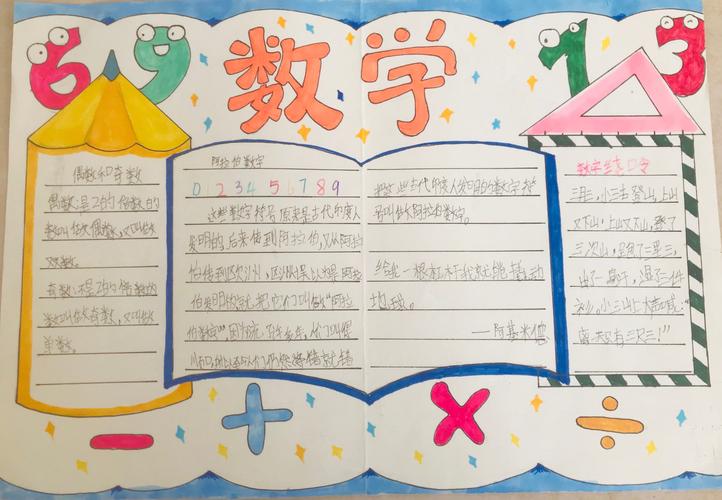 6 9 数学 1 3
偶数和奇数
偶数:是2的倍数的
数叫做偶数,又叫做
双数。
奇数:不是2的倍数的
数叫做奇数,又叫做
单数。
阿拉伯数字
0 1 2 3 4 5 6 7 8 9
这些数字符号原来是古代印度人
发明的,后来传到阿拉伯,又从阿拉
伯传到欧洲,欧洲人以为是阿拉
伯发明的,就把它们叫做“阿拉
伯数字”,因为流传了许多年,人们叫得
所以至今人们仍然将错就错
把这些古代印度人发明的数字符
号叫做阿拉伯数字。
给我一根杠杆我就能撬动
地球。
——阿基米德
数字绕口令
三月三,小三去登山,上山
又下山,下山又上山,登了
三次山,跑了三里三,
出了一身汗,湿了三件
衫,小三山上大声喊:
“离天只有三尺三!”
- + × ÷